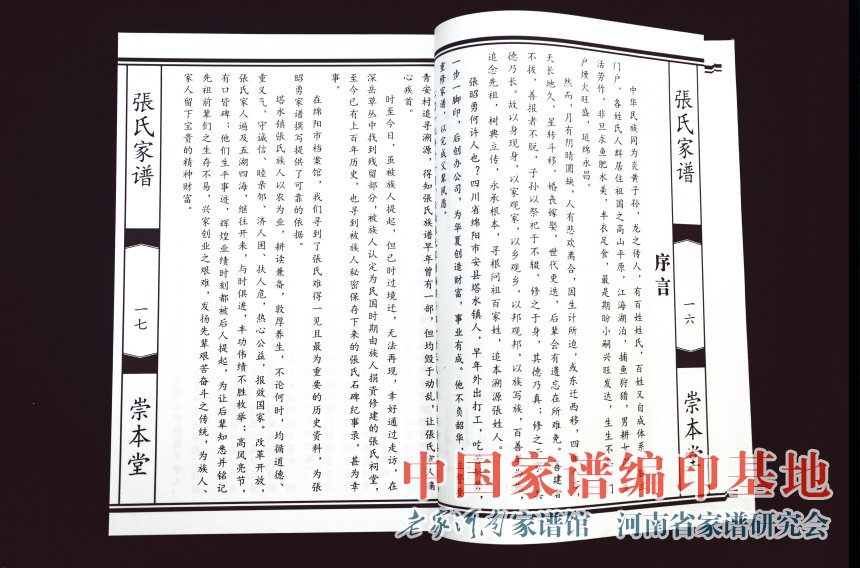 張氏家谱
一六
崇本堂
序言
中华民族同为炎黄子孙，龙之传人，有百姓姓氏，百姓又自成体系，
门户，各姓氏人群居住祖国之高山平原，江海湖泊，捕鱼狩猎，男耕女
活劳作，非旦求鱼肥水美，丰衣足食，最是期盼小嗣兴旺发达，生生不
户煙火旺盛，延绵永昌。
然而，月有阴晴圆缺，人有悲欢离合，因生计所迫，或东迁西移，四
天长地久，星转斗移，婚丧嫁娶，世代更迭，后辈会有遗忘在所难免
不拔，善报者不脱，子孙以祭祀于不辍，修之于身，其德乃真；修之
德乃长。故以身现身，以家观家，以乡观乡，以邦观邦，以族写族，百善
追念先祖，树典立传，永承根本，寻根问祖百家姓，追本溯源张姓人。
張昭勇何许人也？四川省绵阳市安县塔水镇人，早年外出打工，吃
一步一脚印，后创办公司，为华夏创造财富，事业有成。他不负韶华，
重修家谱，以完成父辈夙愿。
青安村追寻溯源，得知張氏族谱早年曾有一部，但均毁于动乱，让張氏
心疾首。
时至今日，虽被族人提起，但已时过境迁，无法再现，幸好通过走访，在
深岳草丛中找到残留部分，被族人认定为民国时期由族人捐资修建的張氏祠堂，
至今已有上百年历史，也寻到被族人秘密保存下来的張氏石碑纪事录，甚为幸
事。
在绵阳市档案馆，我们寻到了張氏难得一见且最为重要的历史资料，为張
昭勇家谱撰写提供了可靠的依据。
塔水镇張氏族人以农为业，耕读兼备，敦厚养生，不论何时，均循道德、
重义气、守诚信、睦亲邻、济人困、扶人危，热心公益，报效国家。改革开放，
張氏家人遍及五湖四海，继往开来，与时俱进，丰功伟绩不胜枚举；高风亮节，
有口皆碑；他们生平事迹，辉煌业绩时刻都被后人提起，为让后辈知悉并铭记
先祖前辈们之生存不易，兴家创业之艰难，发扬先辈艰苦奋斗之传统，为族人、
家人留下宝贵的精神财富。
張氏家谱
一七
崇本堂
中国家谱编印基地
老家河南家谱馆 河南省家谱研究会